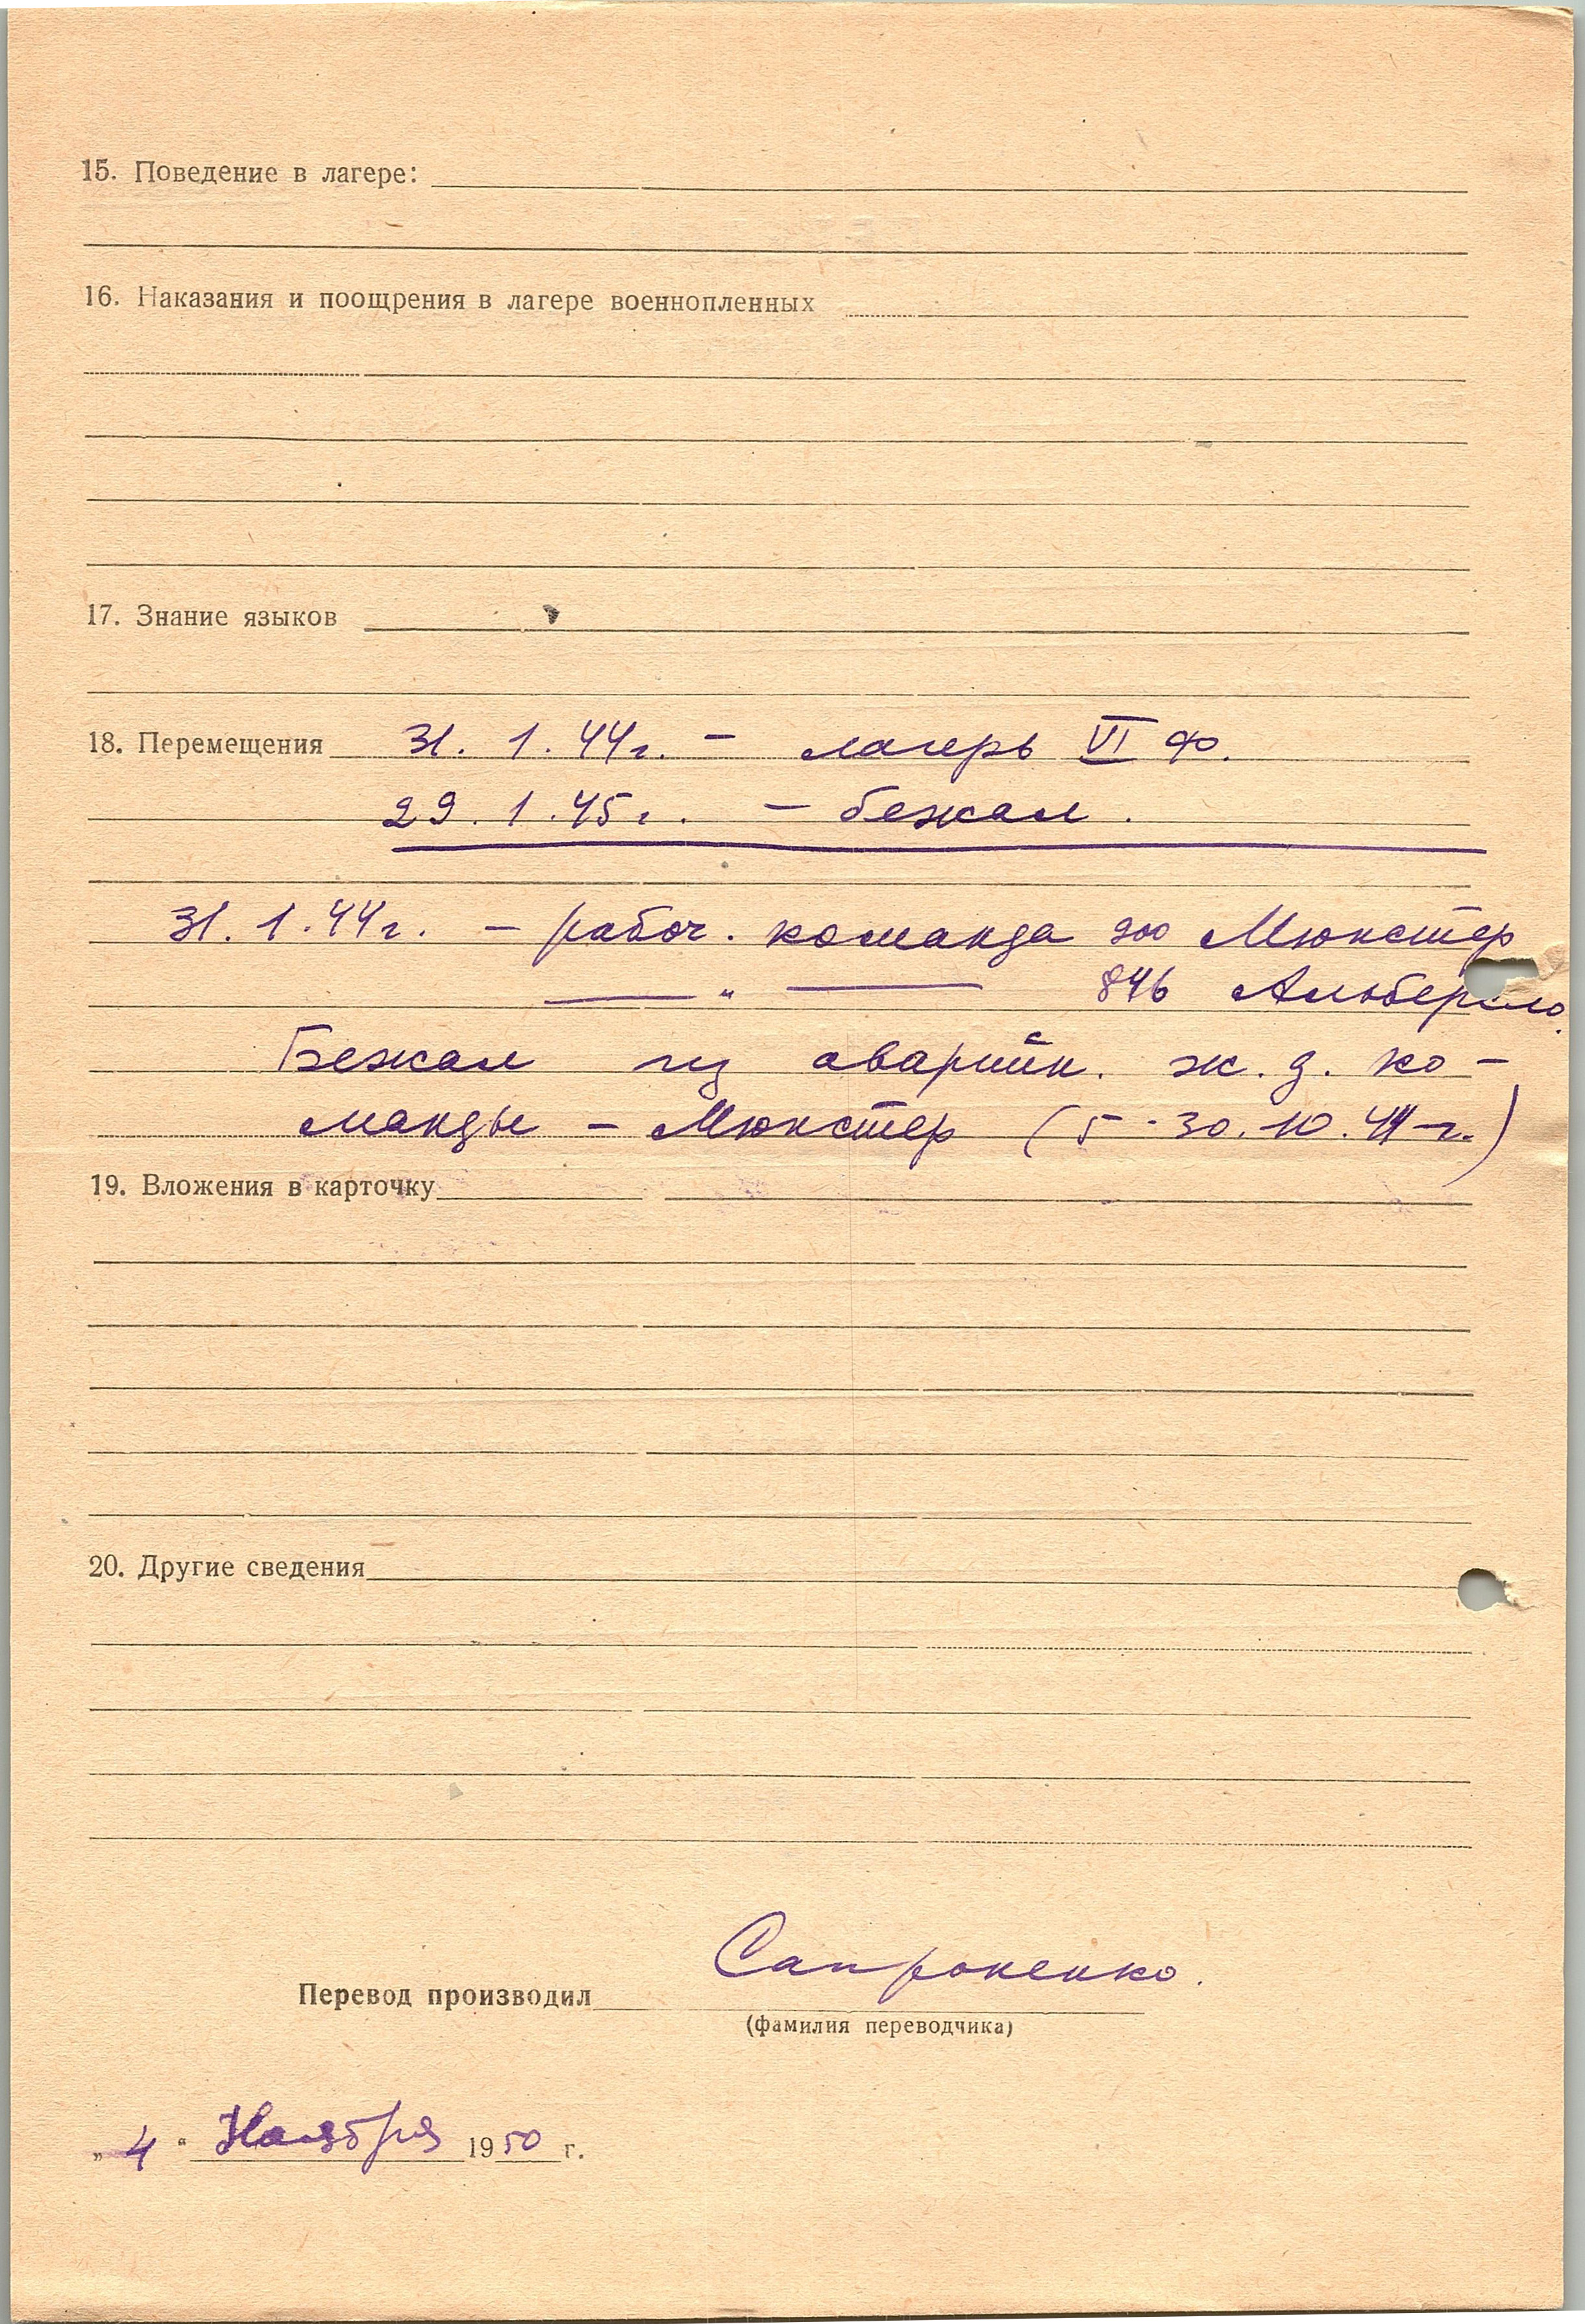 15. Поведение в лагере:
16. Наказания и поощрения в лагере военнопленных
17. Знание языков
18. Перемещения 31. 1. 44 г. – лагерь VI Ф.
29. 1. 45 г. – бежал.
31. 1. 44 г. – рабоч. команда 900 Мюнстер
—— " —— 846 Альберсло.
Бежал из аварийн. ж. д. ко-
манды – Мюнстер (5 - 30. 10. 44 г.)
19. Вложения в карточку
20. Другие сведения
Сапроненко.
Перевод производил
(фамилия переводчика)
„ 4 “ Ноября 1950 г.